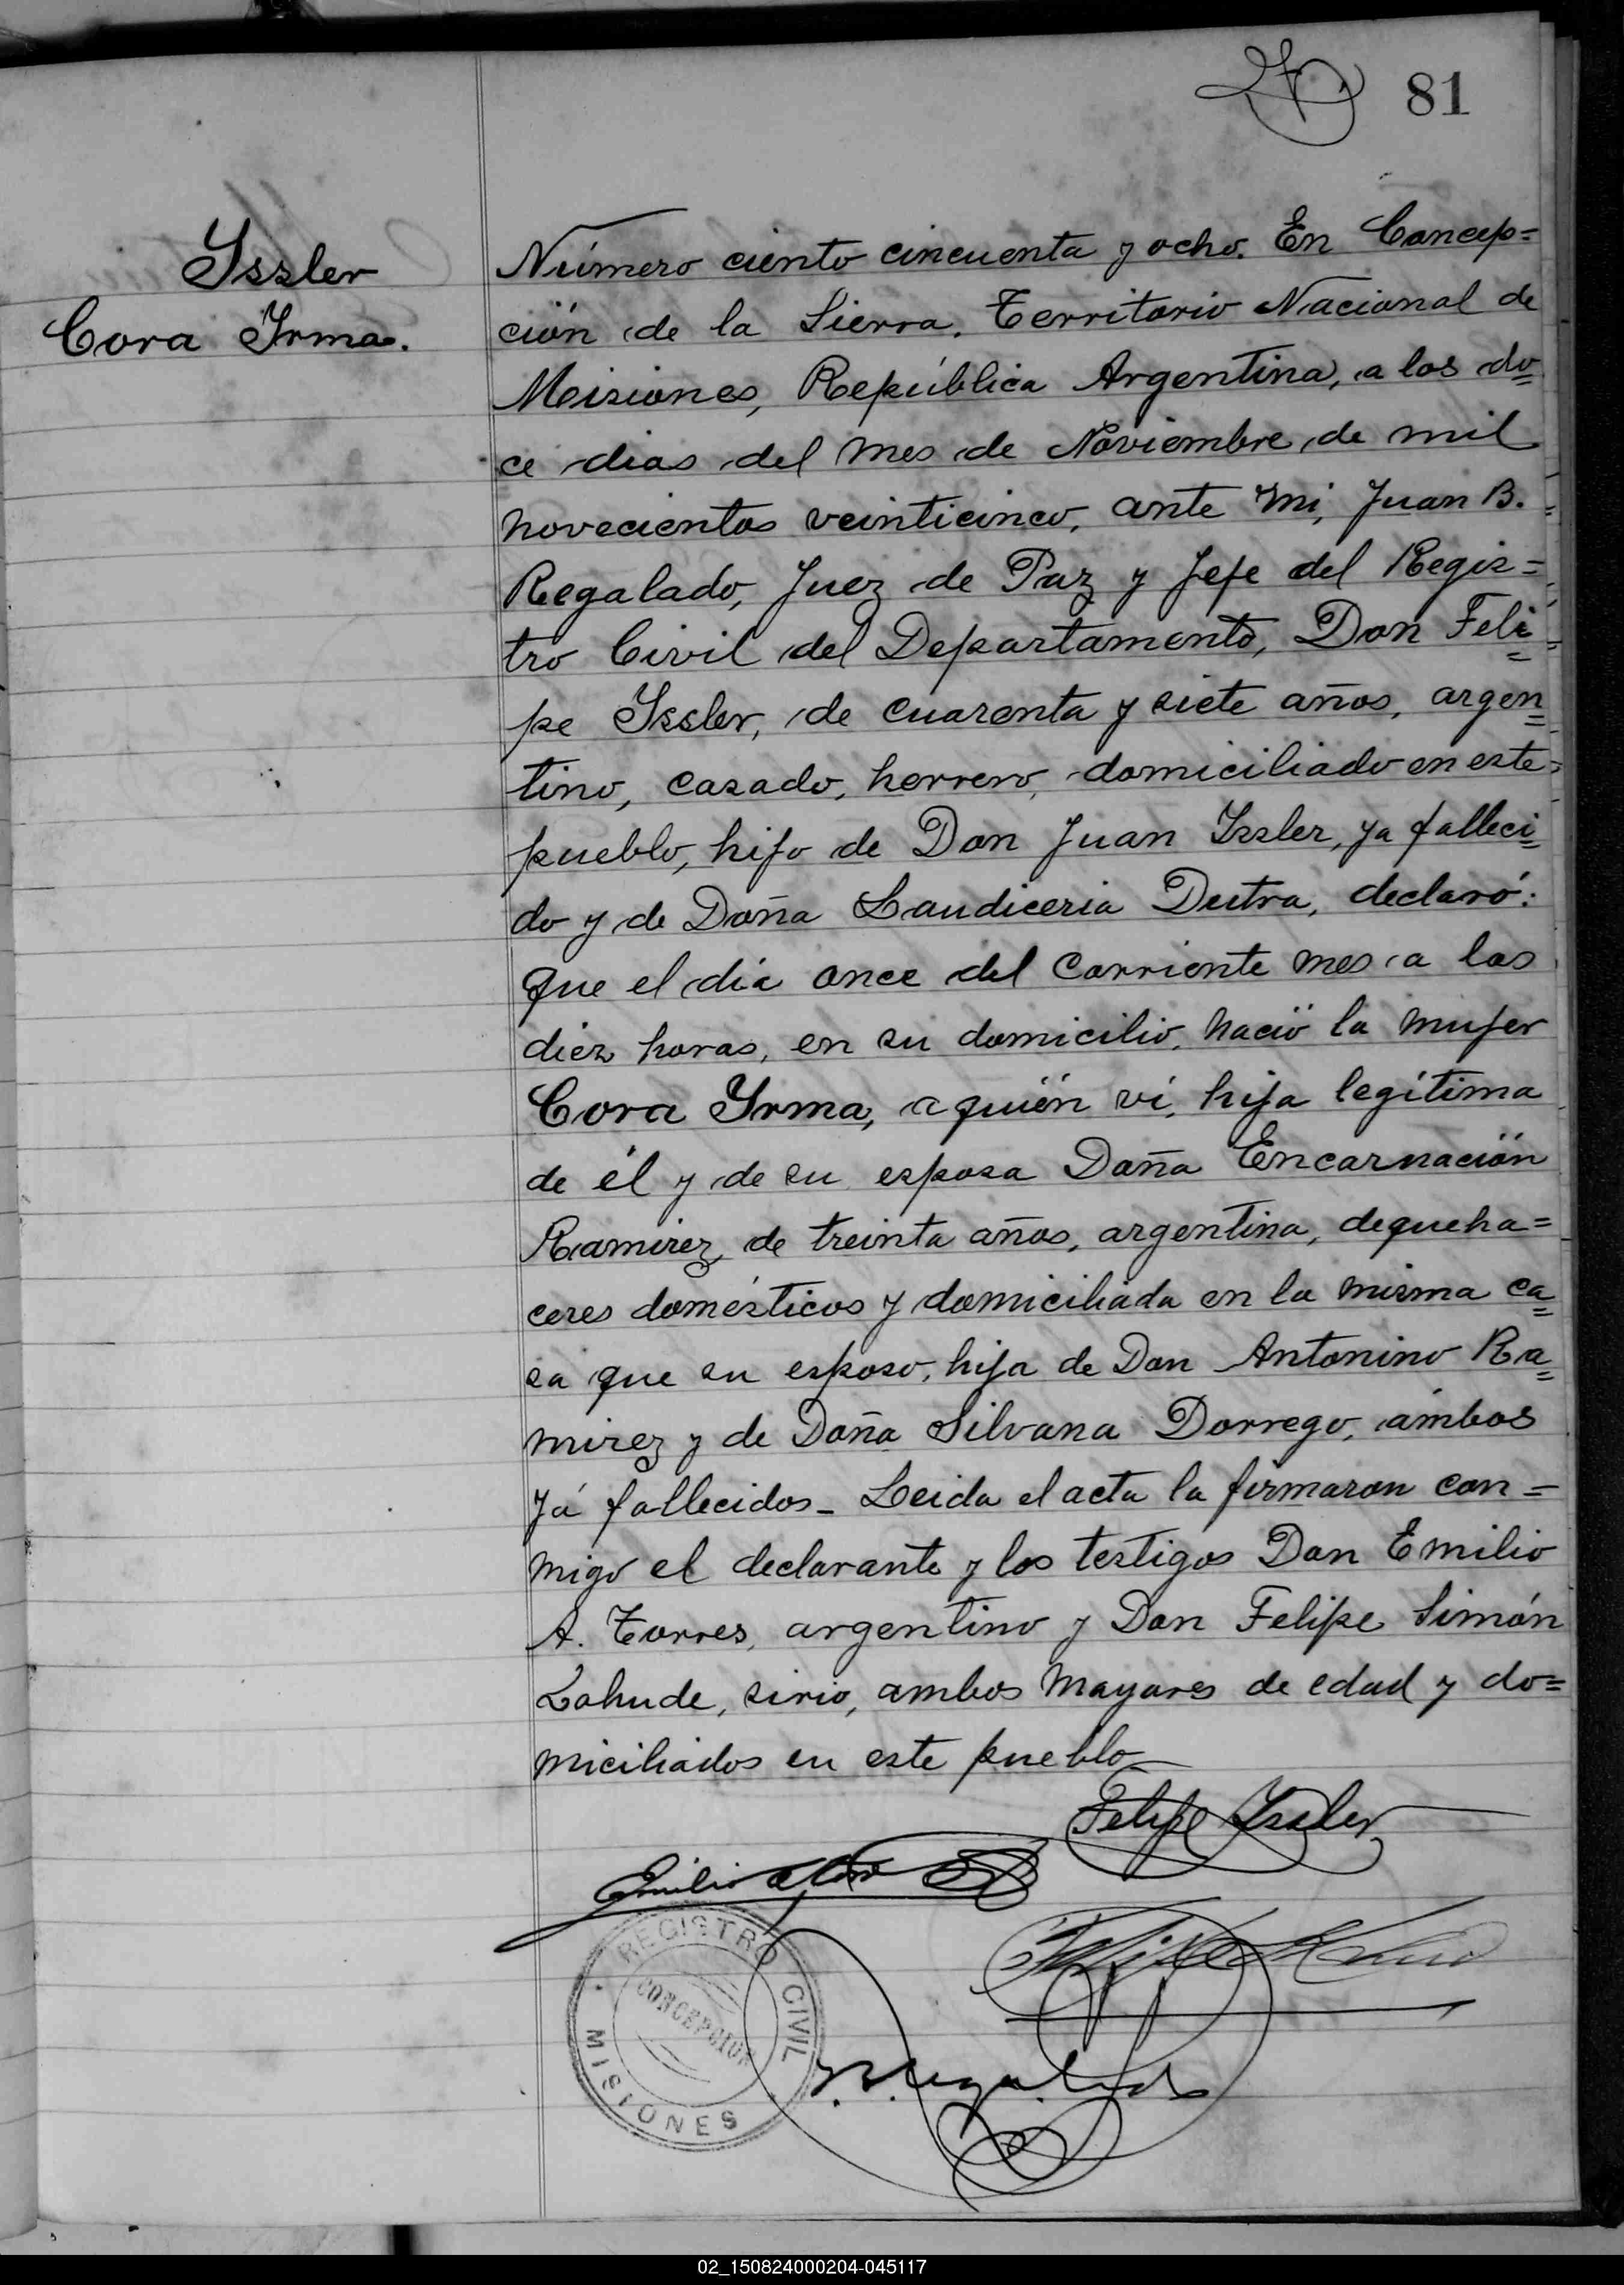 81
Issler
Cora Irma.
Número ciento cincuenta y ocho. En Concep=
ción de la Sierra, Territorio Nacional de
Misiones, República Argentina, a los do=
ce dias del mes de Noviembre de mil
novecientos veinticinco, ante mi, Juan B.
Regalado, Juez de Paz y Jefe del Regis=
tro Civil del Departamento, Don Feli=
pe Issler, de cuarenta y siete años, argen=
tino, casado, herrero, domiciliado en este
pueblo, hijo de Don Juan Issler, ya falleci=
do y de Doña Laudiceria Dutra, declaró:
que el día once del corriente mes a las
diez horas, en su domicilio, nació la mujer
Cora Irma, a quién vi, hija legítima
de él y de su esposa Doña Encarnación
Ramirez, de treinta años, argentina, de queha=
ceres domésticos y domiciliada en la misma ca=
sa que su esposo, hija de Don Antonino Ra=
mirez y de Doña Silvana Dorrego, ámbos
yá fallecidos - Leida el acta la firmaron con=
migo el declarante y los testigos Don Emilio
A. Torres, argentino y Don Felipe Simón
Lahude, sirio, ambos mayores de edad y do=
miciliados en este pueblo
Felipe Issler
Emilio
REGISTRO CIVIL
CONCEPCION
MISIONES
02_150824000204-045117